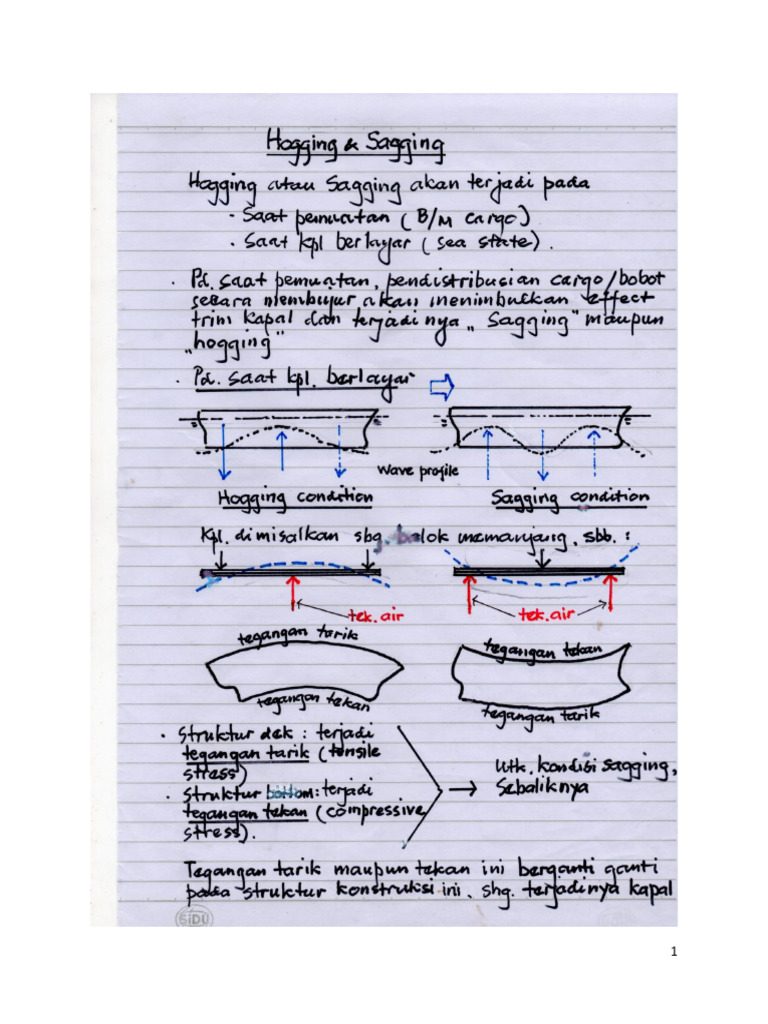 Hogging & Sagging
Hogging atau Sagging akan terjadi pada
- Saat pemuatan ( B/M cargo)
- Saat kpl berlayar ( sea state) .
. Pd. saat pemuatan, pendistribusian cargo/bobot
secara membujur akan menimbulkan effect
trim kapal dan terjadinya „ Sagging " maupun
„hogging"
. Pd. saat kpl. berlayar
Wave profile
Hogging condition
Sagging condition
Kpl. dimisalkan sbg. balok memanjang, sbb. :
tek. air
tek. air
tegangan tarik
tegangan tekan
tegangan tekan
tegangan tarik
. Struktur dek : terjadi
tegangan tarik ( tensile
stress)
. Struktur bottom : terjadi
tegangan tekan (compressive
stress).
Utk. kondisi sagging,
Sebaliknya
Tegangan tarik maupun tekan ini berganti ganti
pada struktur konstruksi ini, shg. terjadinya kapal
SiDU
1